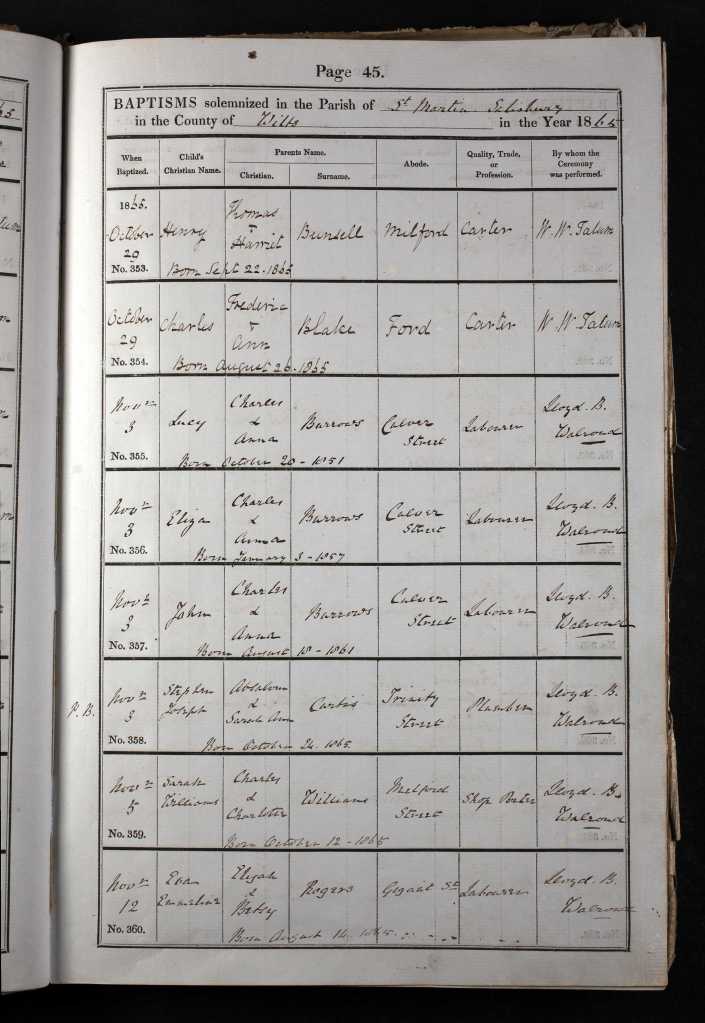 Page 45.
BAPTISMS solemnized in the Parish of St Martin Salisbury
in the County of Wilts in the Year 1865
When Baptized. Child's Christian Name. Parents Name. Christian. Surname. Abode. Quality, Trade, or Profession. By whom the Ceremony was performed.
1865.
October 29 Henry Thomas + Harriet Bunsell Milford Carter W. W. Tatum
No. 353. Born Sept 22. 1865
October 29 Charles Frederic + Ann Blake Ford Carter W. W. Tatum
No. 354. Born August 26. 1865
Novr 3 Lucy Charles & Anna Burrows Culver Street Labourer Lloyd. B. Walrond
No. 355. Born October 20 - 1851
Novr 3 Eliza Charles & Anna Burrows Culver Street Labourer Lloyd. B. Walrond
No. 356. Born January 3 - 1857
Novr 3 John Charles & Anna Burrows Culver Street Labourer Lloyd. B. Walrond
No. 357. Born August 18 - 1861
P. B. Novr 3 Stephen Joseph Absalom & Sarah Ann Curtis Trinity Street Plumber Lloyd. B. Walrond
No. 358. Born October 24. 1865.
Novr 5 Sarah Williams Charles & Charlotte Williams Milford Street Shop Lloyd. B. Walrond
No. 359. Born October 12 - 1865
Novr 12 Eva Emmeline Elijah & Betsy Rogers St Labourer Lloyd B. Walrond
No. 360. Born August 14. 1865.